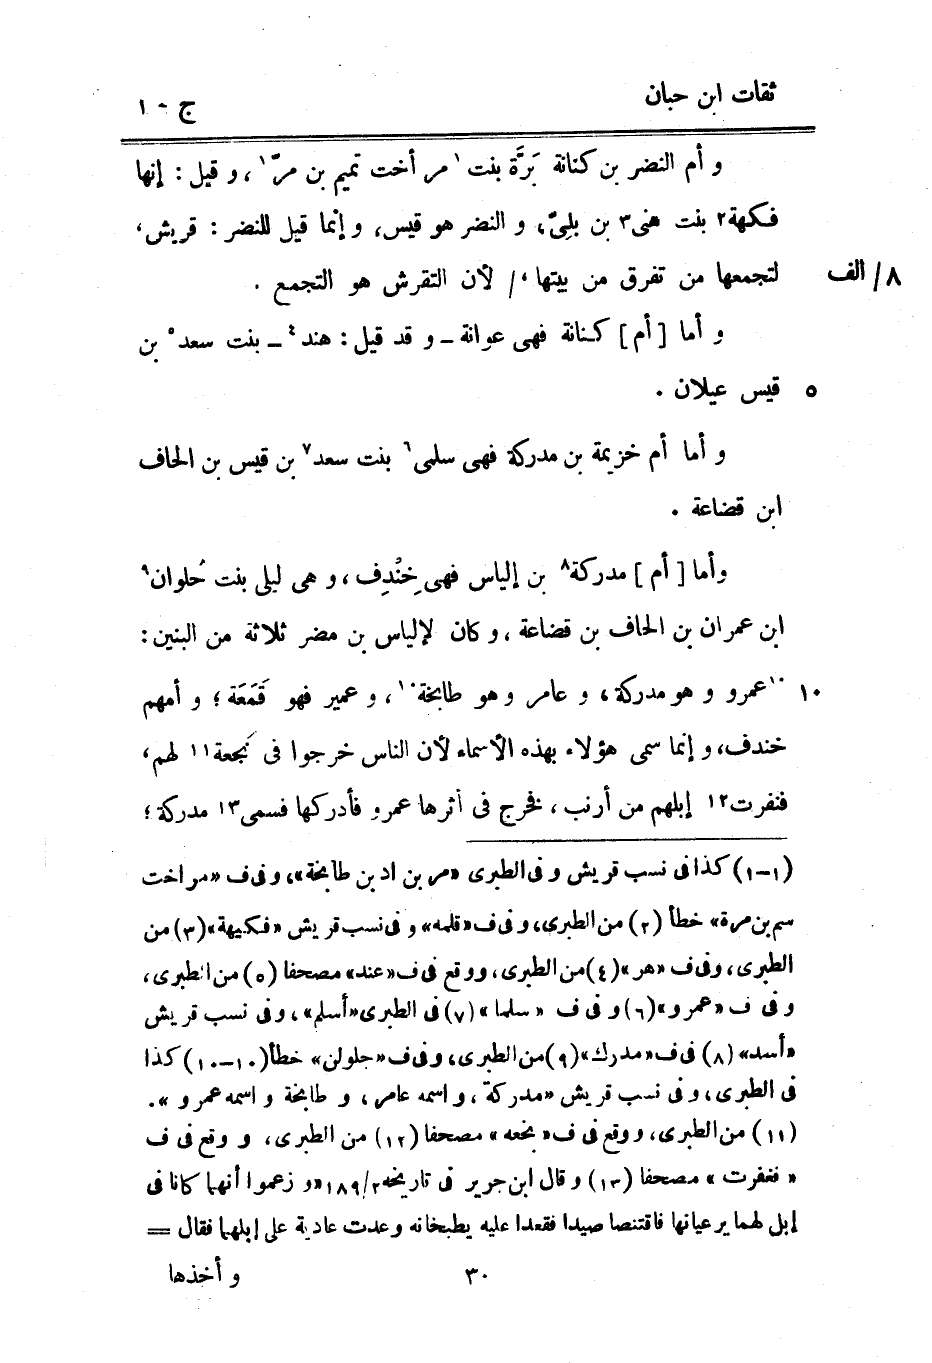 ثقات ابن حبان ج - ١
و أم النضر بن كنانة بَرَّة بنت ١مر أخت تميم بن مرّ١، و قيل : إنها
فكهة٢ بنت هنى٣ بن بلِىّ، و النضر هو قيس، و إنما قيل للنضر : قريش،
لتجمعها من تفرق من بيتها،/ لأن التقرش هو التجمع . ٨/ الف
و أما [ أم ] كنانة فهى عوانة ــ و قد قيل : هند٤ ــ بنت سعد٥ بن
قيس عيلان . ٥
و أما أم خزيمة بن مدركة فهى سلمى٦ بنت سعد٧ بن قيس بن الحاف
ابن قضاعة .
وأما [ أم ] مدركة٨ بن إلياس فهى خِنْدِف، و هى ليلى بنت حُلوان٩
ابن عمران بن الحاف بن قضاعة، و كان لإلياس بن مضر ثلاثة من البنين :
١٠عمرو و هو مدركة، و عامر وهو طابخة١٠، و عمير فهو قَمَعَة؛ و أمهم ١٠
خندف، و إنما سمى هؤلاء بهذه الأسماء لأن الناس خرجوا فى نجعة١١ لهم،
فنفرت١٢ إبلهم من أرنب، فخرج فى أثرها عمرو فأدركها فسمى١٣ مدركة؛
(١-١) كذا فى نسب قريش و فى الطبرى «مر بن اد بن طابخة»، و فى ف «مر اخت
سم بن مرة» خطأ (٢) من الطبرى، و فى ف «قلمه» و فى نسب قريش «فكيهة» (٣) من
الطبرى، وفى ف «هر» (٤) من الطبرى، ووقع فى ف «عند» مصحفا (٥) من الطبرى،
و فى ف «عمرو» (٦) و فى ف «سلما» (٧) فى الطبرى «أسلم»، وفى نسب قريش
«أسد» (٨) فى ف «مدرك» (٩) من الطبرى، وفى ف «جلولن» خطأ (١٠-١٠) كذا
فى الطبرى، و فى نسب قريش «مدركة، و اسمه عامر، و طابخة و اسمه عمرو».
(١١) من الطبرى، ووقع فى ف «بخعه» مصحفا (١٢) من الطبرى، و وقع فى ف
« فغفرت » مصحفا (١٣) و قال ابن جرير فى تاريخه ٢/١٨٩ «و زعموا أنهما كانا فى
إبل لهما يرعيانها فاقتنصا صيدا فقعدا عليه يطبخانه وعدت عادية على إبلهما فقال =
٣٠ و أخذها